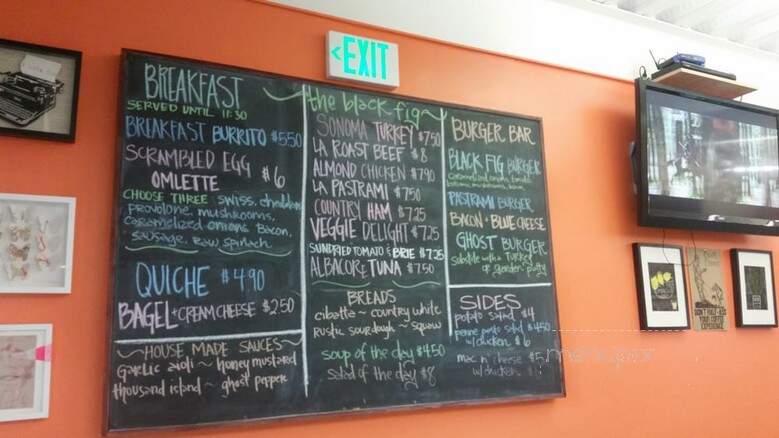 <EXIT
BREAKFAST
SERVED UNTIL 11:30
BREAKFAST BURRITO $5.50
SCRAMBLED EGG
OMLETTE $6
CHOOSE THREE swiss, cheddar
provolone, mushrooms,
caramelized onions, Bacon,
sausage, raw spinach
QUICHE $4.90
BAGEL + CREAM CHEESE $2.50
~HOUSE MADE SAUCES~
Garlic aioli ~ honey mustard
thousand island ~ ghost pepper
the black fig
SONOMA TURKEY $7.50
LA ROAST BEEF $8
ALMOND CHICKEN $7.90
LA PASTRAMI $7.50
COUNTRY HAM $7.25
VEGGIE DELIGHT $7.25
SUNDRIED TOMATO & BRIE $7.25
ALBACORE TUNA $7.50
BREADS
cibatta ~ country white
Rustic sourdough ~ squaw
soup of the day $4.50
Salad of the day $8
BURGER BAR
BLACK FIG BURGER
PASTRAMI BURGER
BACON + BLUE CHEESE
GHOST BURGER
substitute with a TURKEY
or garden patty
SIDES
potato salad $4
penne pasta salad $4.50
w/chicken $6
mac n' cheese $5
w/chicken
menupix